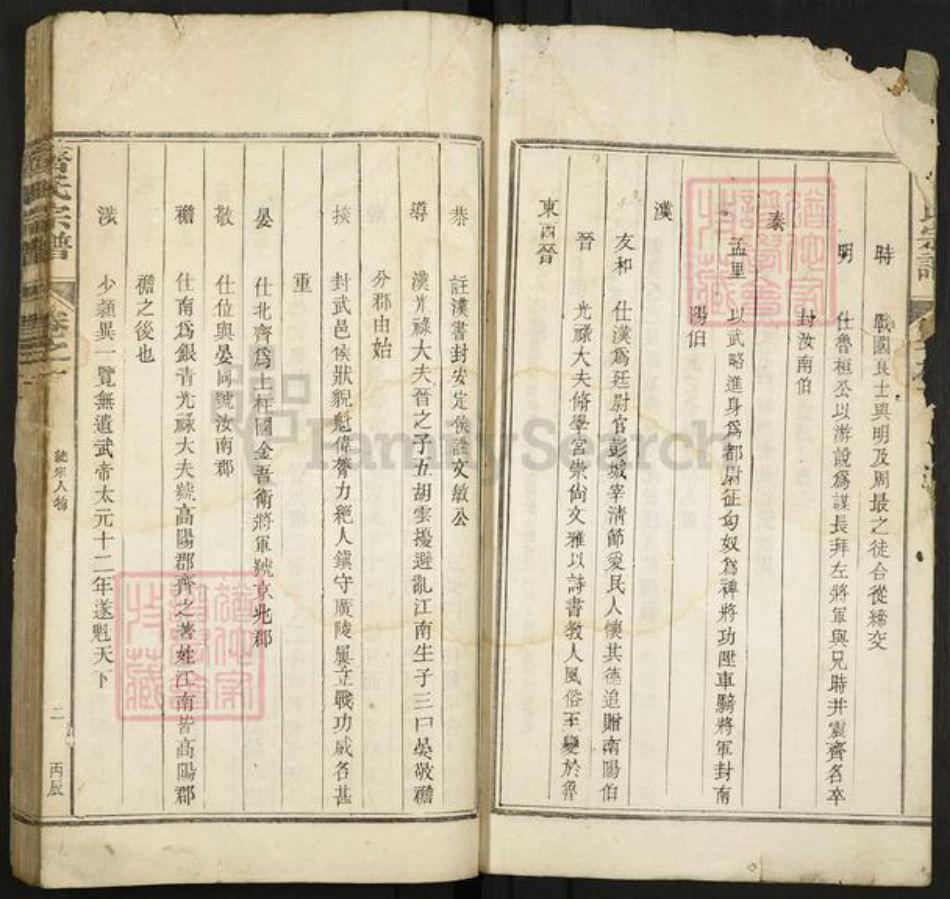 時 戰國良士與明及周最之徒合從締交
明 仕魯桓公以游說為謀長拜左將軍與兄時并震齊名卒
封汝南伯
秦
孟里 以武略進身為都尉征匈奴為裨將功陞車騎將軍封南
陽伯
漢
友和 仕漢為廷尉官彭城宰清節愛民人懷其德追贈南陽伯
晉 光祿大夫脩學宮崇尚文雅以詩書教人風俗丕變於齊
東西晉
恭 註漢書封安定侯諡文敏公
導 漢光祿大夫晉之子五胡雲擾避亂江南生子三曰晏敬禮
分郡由始
封武邑侯狀貌魁偉膂力絕人鎮守廣陵屢立戰功威名甚
重
晏 仕北齊為上柱國金吾衛將軍號京兆郡
敬 仕位與晏同號汝南郡
仕南為銀青光祿大夫號高陽郡齊之著姓江南皆高陽郡
之後也
少穎異一覽無遺武帝太元十二年遂魁天下
齊氏宗譜
卷之一
人物
二
丙辰
FamilySearch